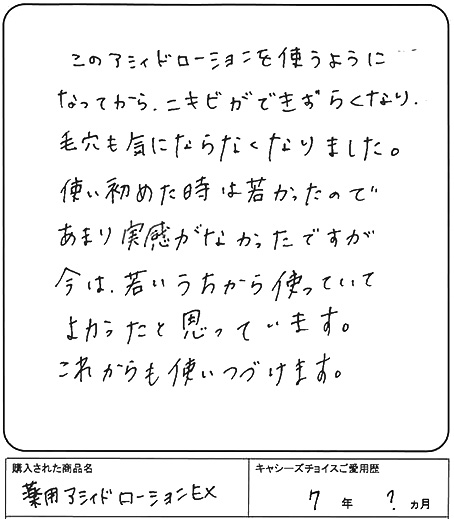 このアシィドローションを使うように
なってから、ニキビができずらくなり、
毛穴も気にならなくなりました。
使い初めた時は若かったので
あまり実感がなかったですが
今は、若いうちから使っていて
よかったと思っています。
これからも使いつづけます。
購入された商品名
薬用アシィドローションEX
キャシーズチョイスご愛用歴
7年 ?ヵ月